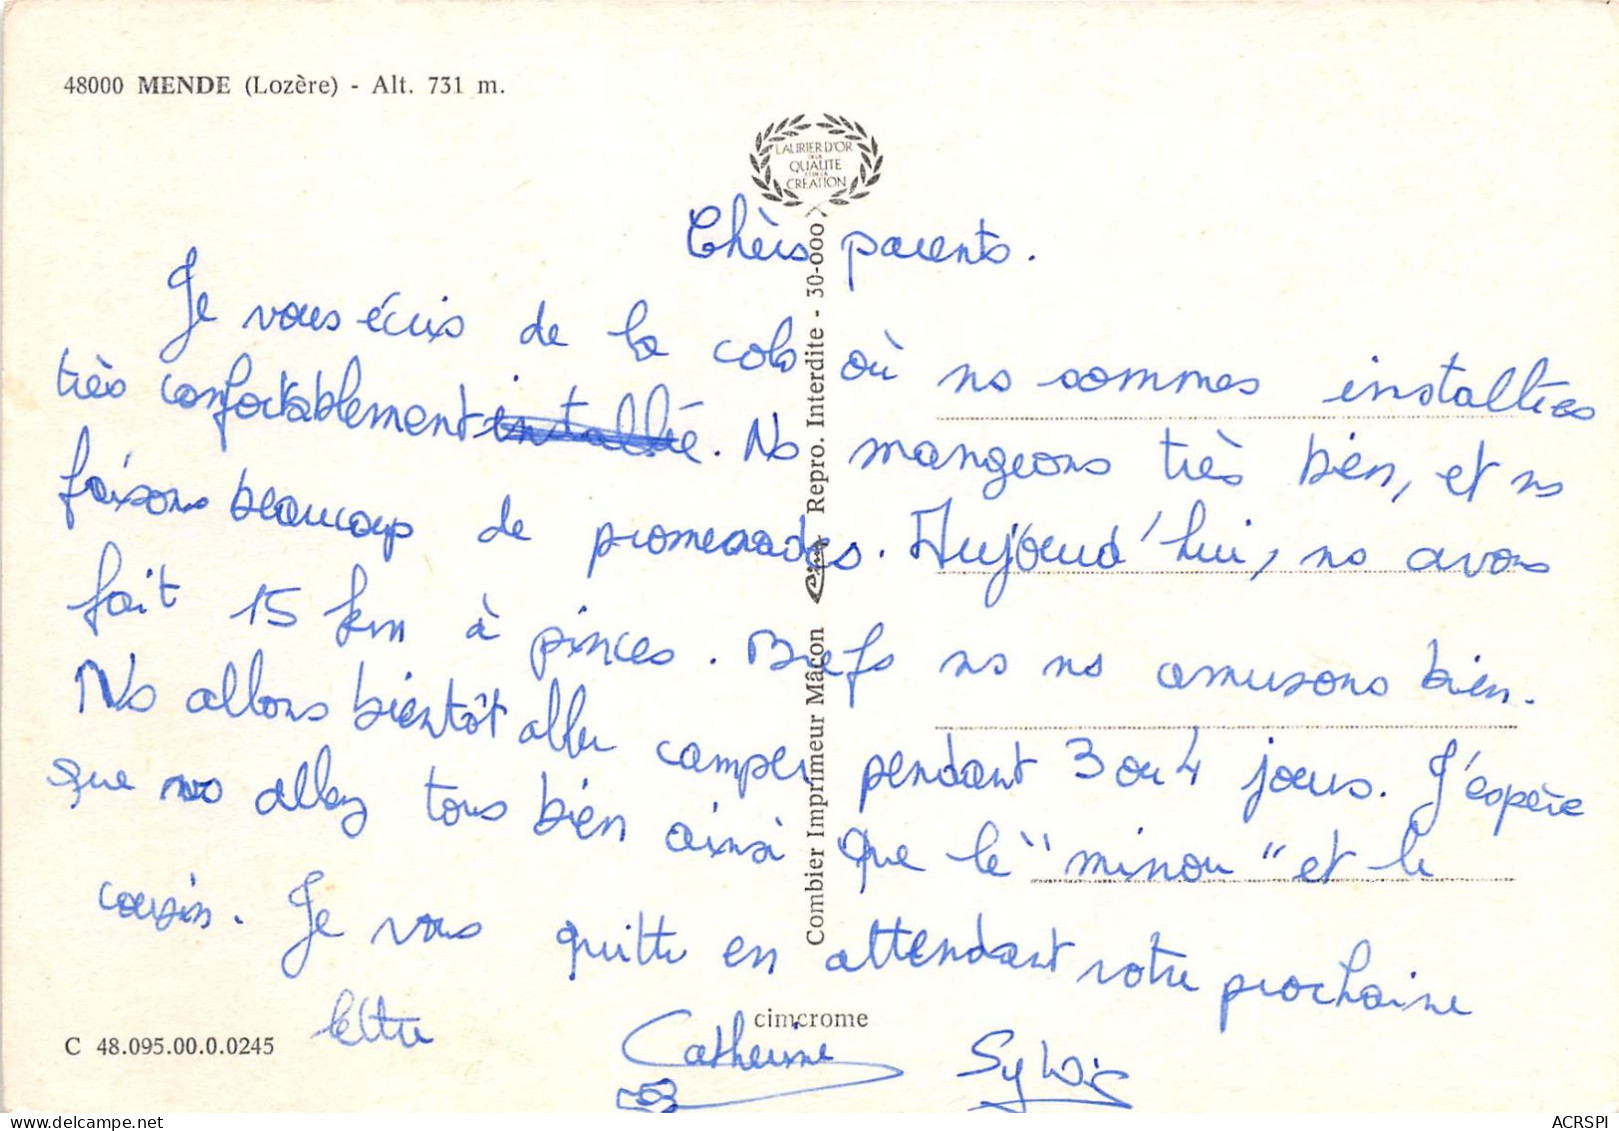 48000 MENDE (Lozère) - Alt. 731 m.
LAURIER D'OR
DE LA
QUALITE
ET DE LA
CREATION
Chèrs parents.
Je vous écris de la colo où ns sommes installées
très confortablement intallée. Ns mangeons très bien, et ns
faisons beaucoup de promenades. Aujourd'hui, ns avons
fait 15 km à pinces. Brefs ns ns amusons bien.
Ns allons bientôt aller camper pendant 3 ou 4 jours. J'espère
que vous allez tous bien ainsi que le "minou" et le
cousin. Je vous quitte en attendant votre prochaine
lettre
Catherine Sylvie
Combier Imprimeur Mâcon Cim Repro. Interdite - 30-000
cimcrome
C 48.095.00.0.0245
ACRSPI